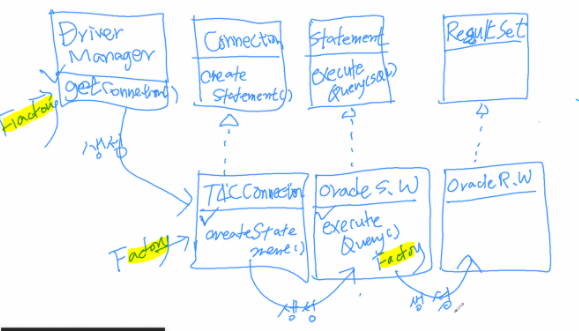 Driver
Manager
getConnection()
Factory
생성
Connection
create
Statement()
Statement
execute
Query(SQL)
ResultSet
T4CConnection
createState
ment()
Factory
생성
OracleS.W
execute
Query()
Factory
생성
OracleR.W